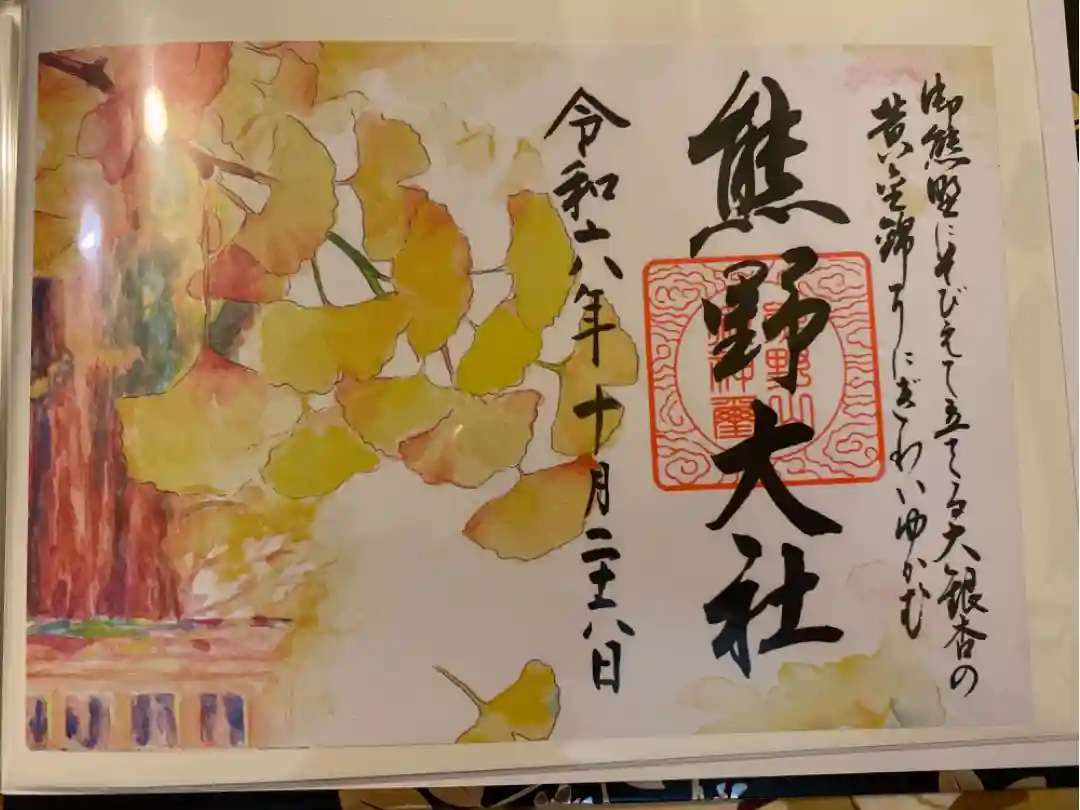 御熊野にそびえて立てる大銀杏の
黄金錦 にぎわいゆかむ
熊野大社
野山
神璽
令和六年十月二十六日